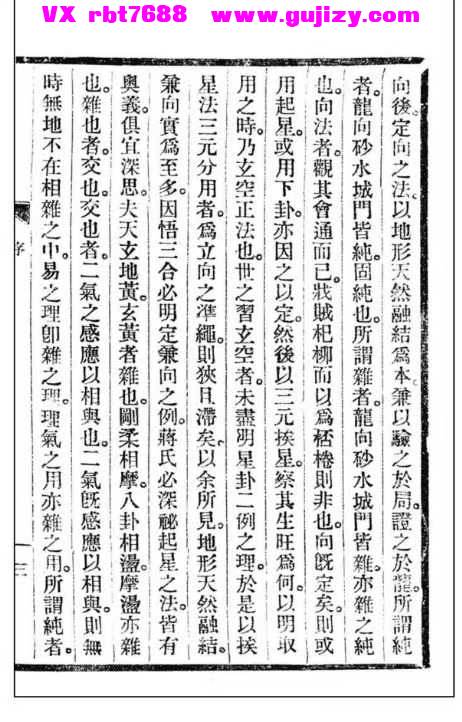 VX rbt7688 www.gujizy.com
向後。定向之法。以地形天然融結爲本。兼以驗之於局。證之於龍。所謂純
者。龍向砂水城門皆純。固純也。所謂雜者。龍向砂水城門皆雜。亦雜之純
也。向法者。觀其會通而已。戕賊杞柳而以爲桮棬則非也。向既定矣。則或
用起星。或用下卦。亦因之以定。然後以三元挨星。察其生旺爲何。以明取
用之時。乃玄空正法也。世之習玄空者。未盡明星卦二例之理。於是以挨
星法三元分用者。爲立向之準繩。則狹且滯矣。以余所見。地形天然融結。
兼向實爲至多。因悟三合必明定兼向之例。蔣氏必深祕起星之法。皆有
奧義。俱宜深思。夫天玄地黃。玄黃者雜也。剛柔相摩。八卦相盪。摩盪亦雜
也。雜也者。交也。交也者。二氣之感應以相與也。二氣既感應以相與。則無
時無地不在相雜之中。易之理卽雜之理。理氣之用亦雜之用。所謂純者。
序
三